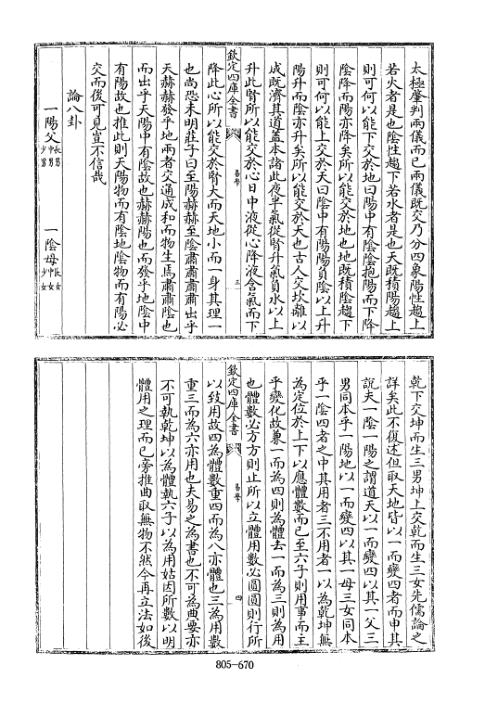 太極肇判兩儀而已兩儀既交乃分四象陽性趨上
若火者是也陰性趨下若水者是也天既積陽趨上
則可何以能下交於地曰陽中有陰陰抱陽而下降
陰降而陽亦降矣所以能交於地也地既積陰趨下
則可何以能上交於天曰陰中有陽陽負陰以上升
陽升而陰亦升矣所以能交於天也古人交坎離以
成既濟其道蓋本諸此夜半氣從腎升氣負水以上
升此腎所以能交於心日中液從心降液含氣而下
欽定四庫全書
三
降此心所以能交於腎大而天地小而一身其理一
也尚恐未明莊子曰至陽赫赫至陰肅肅肅肅出乎
天赫赫發乎地兩者交通成和而物生焉肅肅陰也
而出乎天陽中有陰故也赫赫陽也而發乎地陰中
有陽故也推此則天陽物而有陰地陰物而有陽必
交而後可見豈不信哉
論八卦
一陽父長男中男少男 一陰母長女中女少女
乾下交坤而生三男坤上交乾而生三女先儒論之
詳矣此不復述但取天地皆以一而變四者而申其
說夫一陰一陽之謂道天以一而變四以其一父三
男同本乎一陽地以一而變四以其一母三女同本
乎一陰四者之中其用者三不用者一以為乾坤無
為定位於上下以應體數而已至六子則用事而主
乎變化故兼一而為四則為體去一而為三則為用
也體數必方方則止所以立體用數必圓圓則行所
欽定四庫全書
四
以致用故四為體數重四而為八亦體也三為用數
重三而為六亦用也夫易之為書也不可為典要亦
不可執乾坤以為體執六子以為用姑因所數以明
體用之理而已旁推曲取無物不然今再立法如後
805-670